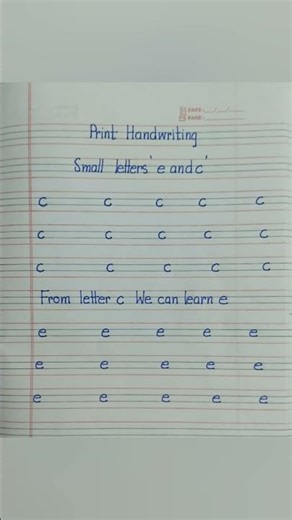 DATE:
PAGE:
Print Handwriting
Small letters 'e and c'
c c c c c
c c c c c
c c c c c
From letter c We can learn e
e e e e e
e e e e e
e e e e e